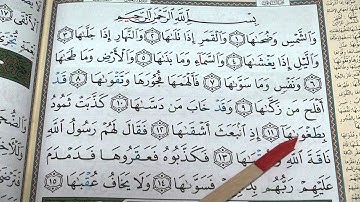 بِسْمِ اللَّهِ الرَّحْمَٰنِ الرَّحِيمِ
وَالشَّمْسِ وَضُحَىٰهَا ١ وَالْقَمَرِ إِذَا تَلَىٰهَا ٢ وَالنَّهَارِ إِذَا جَلَّىٰهَا ٣
وَاللَّيْلِ إِذَا يَغْشَىٰهَا ٤ وَالسَّمَاءِ وَمَا بَنَىٰهَا ٥ وَالْأَرْضِ وَمَا طَحَىٰهَا
٦ وَنَفْسٍ وَمَا سَوَّىٰهَا ٧ فَأَلْهَمَهَا فُجُورَهَا وَتَقْوَىٰهَا ٨ قَدْ
أَفْلَحَ مَن زَكَّىٰهَا ٩ وَقَدْ خَابَ مَن دَسَّىٰهَا ١٠ كَذَّبَتْ ثَمُودُ
بِطَغْوَىٰهَا ١١ إِذِ انبَعَثَ أَشْقَىٰهَا ١٢ فَقَالَ لَهُمْ رَسُولُ اللَّهِ
نَاقَةَ اللَّهِ ١٣ فَكَذَّبُوهُ فَعَقَرُوهَا فَدَمْدَمَ
عَلَيْهِمْ رَبُّهُم فَسَوَّىٰهَا ١٤ وَلَا يَخَافُ عُقْبَىٰهَا ١٥